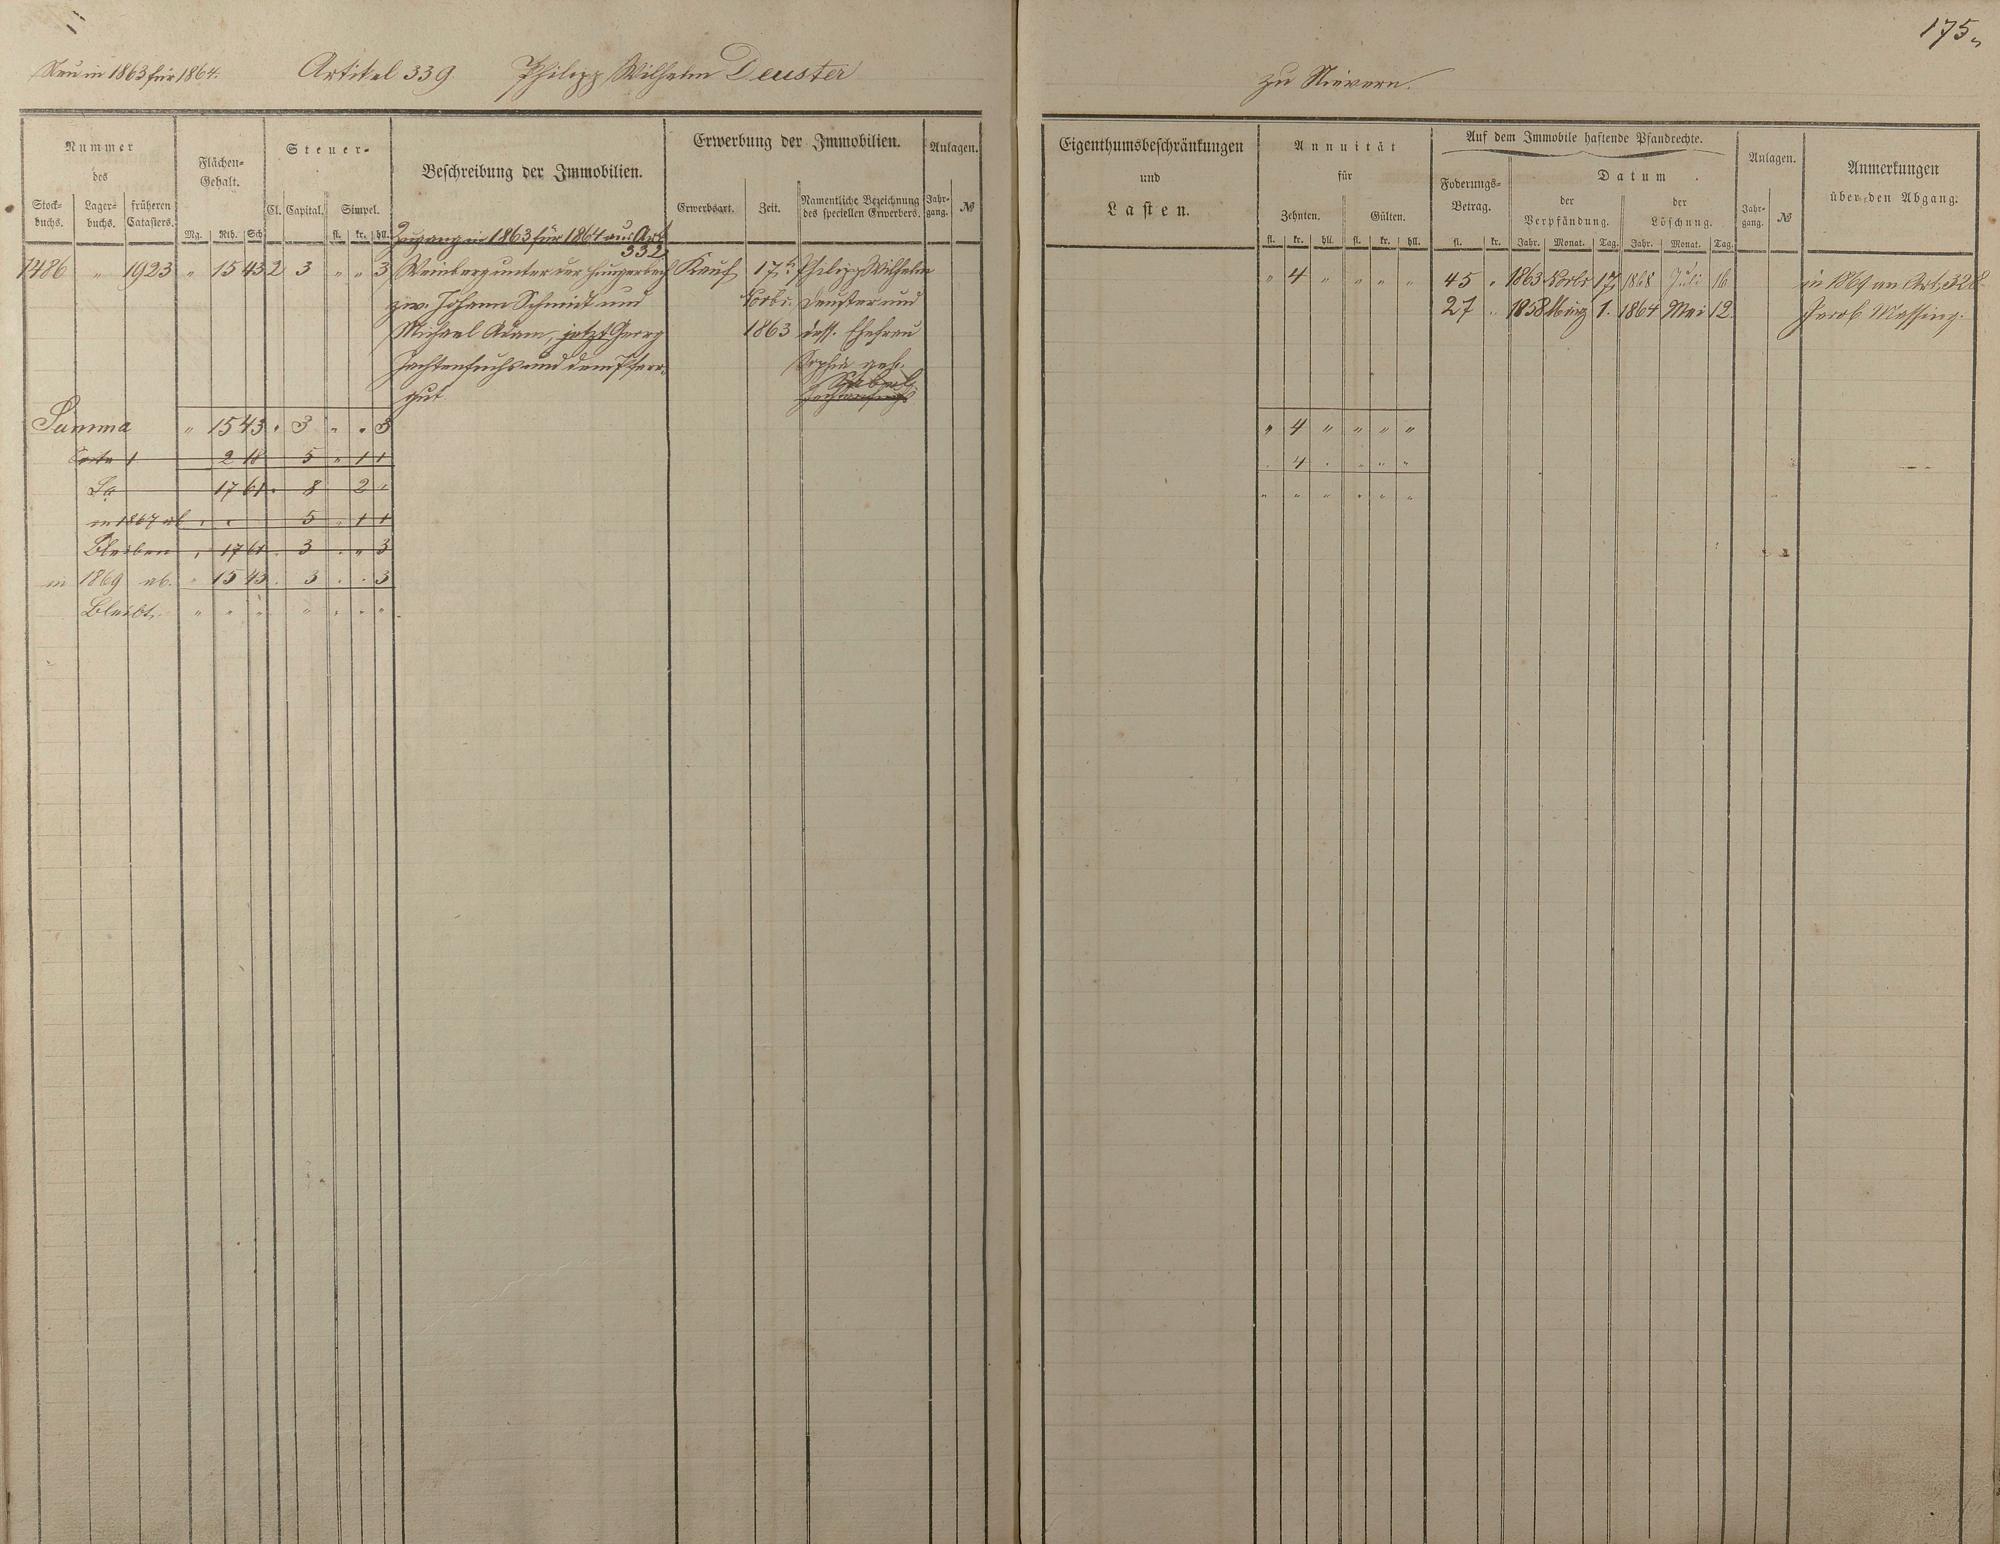 175
Neu in 1863 für 1864.
Artikel 339
Philipp Wilhelm Deuster
zu Nievern.
Nummer
des
Stock-
buchs.
Lager-
buchs.
früheren
Catasters.
Flächen-
Gehalt.
Mg. Rth. Sch
Steuer-
Cl. Capital. Simpel.
fl. kr. hll.
Beschreibung der Immobilien.
Erwerbung der Immobilien.
Erwerbsart. Zeit.
Namentliche Bezeichnung
des speciellen Erwerbers.
Anlagen.
Jahr-
gang.
№
Eigenthumsbeschränkungen
und
Lasten.
Annuität
für
Zehnten. Gülten.
fl. kr. hll. fl. kr. hll.
Auf dem Immobile haftende Pfandrechte.
Foderungs-
Betrag.
fl. kr.
Datum
der
Verpfändung.
Jahr. Monat. Tag.
der
Löschung.
Jahr. Monat. Tag.
Anlagen.
Jahr-
gang.
№
Anmerkungen
über den Abgang.
Zugang in 1863 für 1864 aus Art.
332
1486 " 1923 " 15 43 2 3 " " 3
Weinberg unter der Hungerbach
zw. Johann Schmidt und
Michael Adam, jetzt Georg
Fachtenfuchs und dem Pfarr-
gut
Kauf
17t
Novbr.
1863
Philipp Wilhelm
Deuster und
dess. Ehefrau
Sophia geb.
" 4 " " " "
45 " 1863 Novbr 17. 1868 Juli 16
27 " 1858 März 1. 1864 Mai 12
in 1869 an Art. 328
Jacob Massing.
Summa " 15 43 " 3 " " 3
" 4 " " " "
1 2 18 5 " 1 1
" 4 " " " "
Sa 17 61 " 8 2 "
" " " " " "
in 1867 ab " " 5 " 1 1
Bleiben " 17 61 " 3 " " 3
in 1869 ab. " 15 43 " 3 " " 3
Bleibt " " " " " " "